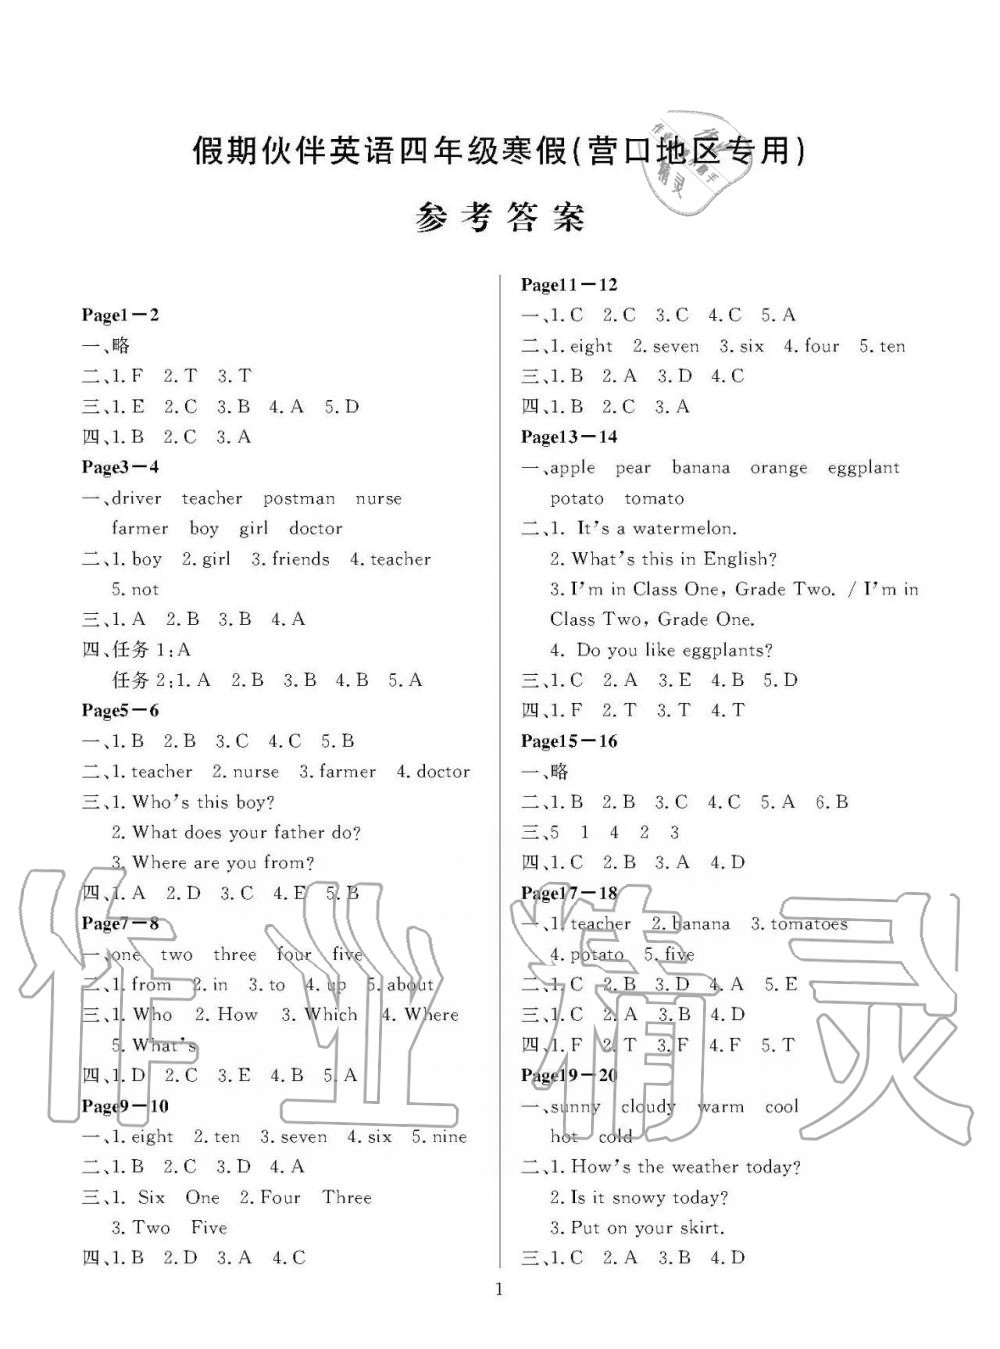 假期伙伴英语四年级寒假(营口地区专用)
参考答案
Page1－2
一、略
二、1. F 2. T 3. T
三、1. E 2. C 3. B 4. A 5. D
四、1. B 2. C 3. A
Page3－4
一、driver teacher postman nurse
farmer boy girl doctor
二、1. boy 2. girl 3. friends 4. teacher
5. not
三、1. A 2. B 3. B 4. A
四、任务 1:A
任务 2:1. A 2. B 3. B 4. B 5. A
Page5－6
一、1. B 2. B 3. C 4. C 5. B
二、1. teacher 2. nurse 3. farmer 4. doctor
三、1. Who's this boy?
2. What does your father do?
3. Where are you from?
四、1. A 2. D 3. C 4. E 5. B
Page7－8
一、one two three four five
二、1. from 2. in 3. to 4. up 5. about
三、1. Who 2. How 3. Which 4. Where
5. What's
四、1. D 2. C 3. E 4. B 5. A
Page9－10
一、1. eight 2. ten 3. seven 4. six 5. nine
二、1. B 2. C 3. D 4. A
三、1. Six One 2. Four Three
3. Two Five
四、1. B 2. D 3. A 4. C
Page11－12
一、1. C 2. C 3. C 4. C 5. A
二、1. eight 2. seven 3. six 4. four 5. ten
三、1. B 2. A 3. D 4. C
四、1. B 2. C 3. A
Page13－14
一、apple pear banana orange eggplant
potato tomato
二、1. It's a watermelon.
2. What's this in English?
3. I'm in Class One, Grade Two. / I'm in
Class Two, Grade One.
4. Do you like eggplants?
三、1. C 2. A 3. E 4. B 5. D
四、1. F 2. T 3. T 4. T
Page15－16
一、略
二、1. B 2. B 3. C 4. C 5. A 6. B
三、5 1 4 2 3
四、1. C 2. B 3. A 4. D
Page17－18
一、1. teacher 2. banana 3. tomatoes
4. potato 5. five
二、1. C 2. B 3. D 4. A 5. E
三、1. C 2. A 3. B 4. D
四、1. F 2. T 3. F 4. F 5. T
Page19－20
一、sunny cloudy warm cool
hot cold
二、1. How's the weather today?
2. Is it snowy today?
3. Put on your skirt.
三、1. C 2. A 3. B 4. D
1
作业精灵